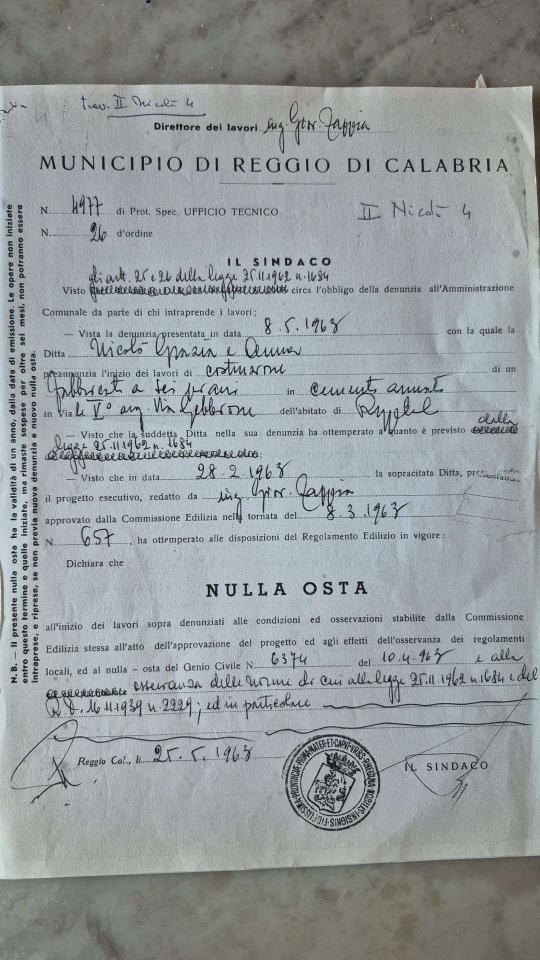 trav. II Nicolò 4
Direttore dei lavori ing. Giov. Zappia
MUNICIPIO DI REGGIO DI CALABRIA
N. 4977 di Prot. Spec. UFFICIO TECNICO
II Nicolò 4
N. 26 d'ordine
IL SINDACO
gli artt. 25 e 26 della legge 25.11.1962 n. 1684
Visto circa l'obbligo della denunzia all'Amministrazione
Comunale da parte di chi intraprende i lavori;
— Vista la denunzia presentata in data 8.5.1963 con la quale la
Ditta Nicolò Grazia e Anna
preannunzia l'inizio dei lavori di costruzione di un
fabbricato a sei piani in cemento armato
in Via le V° ang. Via Gebbione dell'abitato di
— Visto che la suddetta Ditta nella sua denunzia ha ottemperato a quanto è previsto dalla
legge 25.11.1962 n. 1684
— Visto che in data 28.2.1963 la sopracitata Ditta,
il progetto esecutivo, redatto da ing. Giov. Zappia
approvato dalla Commissione Edilizia nella tornata del 8.3.1963
N. 657, ha ottemperato alle disposizioni del Regolamento Edilizio in vigore:
Dichiara che
NULLA OSTA
all'inizio dei lavori sopra denunziati alle condizioni ed osservazioni stabilite dalla Commissione
Edilizia stessa all'atto dell'approvazione del progetto ed agli effetti dell'osservanza dei regolamenti
locali, ed al nulla - osta del Genio Civile N. 6374 del 10.4.963 e alla
osservanza delle norme di cui alla legge 25.11.1962 n. 1684 e del
R.D. 16.11.1939 n. 2229; ed in particolare
Reggio Cal., li 25.5.1963
IL SINDACO
N. B. — Il presente nulla osta ha la validità di un anno, dalla data di emissione. Le opere non iniziate
entro questo termine e quelle iniziate, ma rimaste sospese per oltre sei mesi, non potranno essere
intraprese, e riprese, se non previa nuova denunzia e nuovo nulla osta.